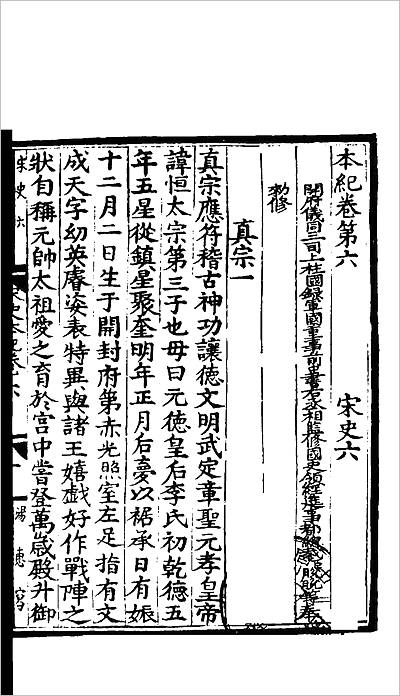 本紀卷第六　宋史六
開府儀同三司上柱國錄軍國重事前中書右丞相監修國史領經筵事都總裁脫脫等奉
勑修
真宗一
真宗應符稽古神功讓德文明武定章聖元孝皇帝
諱恒太宗第三子也母曰元德皇后李氏初乾德五
年五星從鎮星聚奎明年正月后夢以裾承日有娠
十二月二日生于開封府第赤光照室左足指有文
成天字幼英睿姿表特異與諸王嬉戲好作戰陣之
狀自稱元帥太祖愛之育於宮中嘗登萬歲殿升御
宋史六